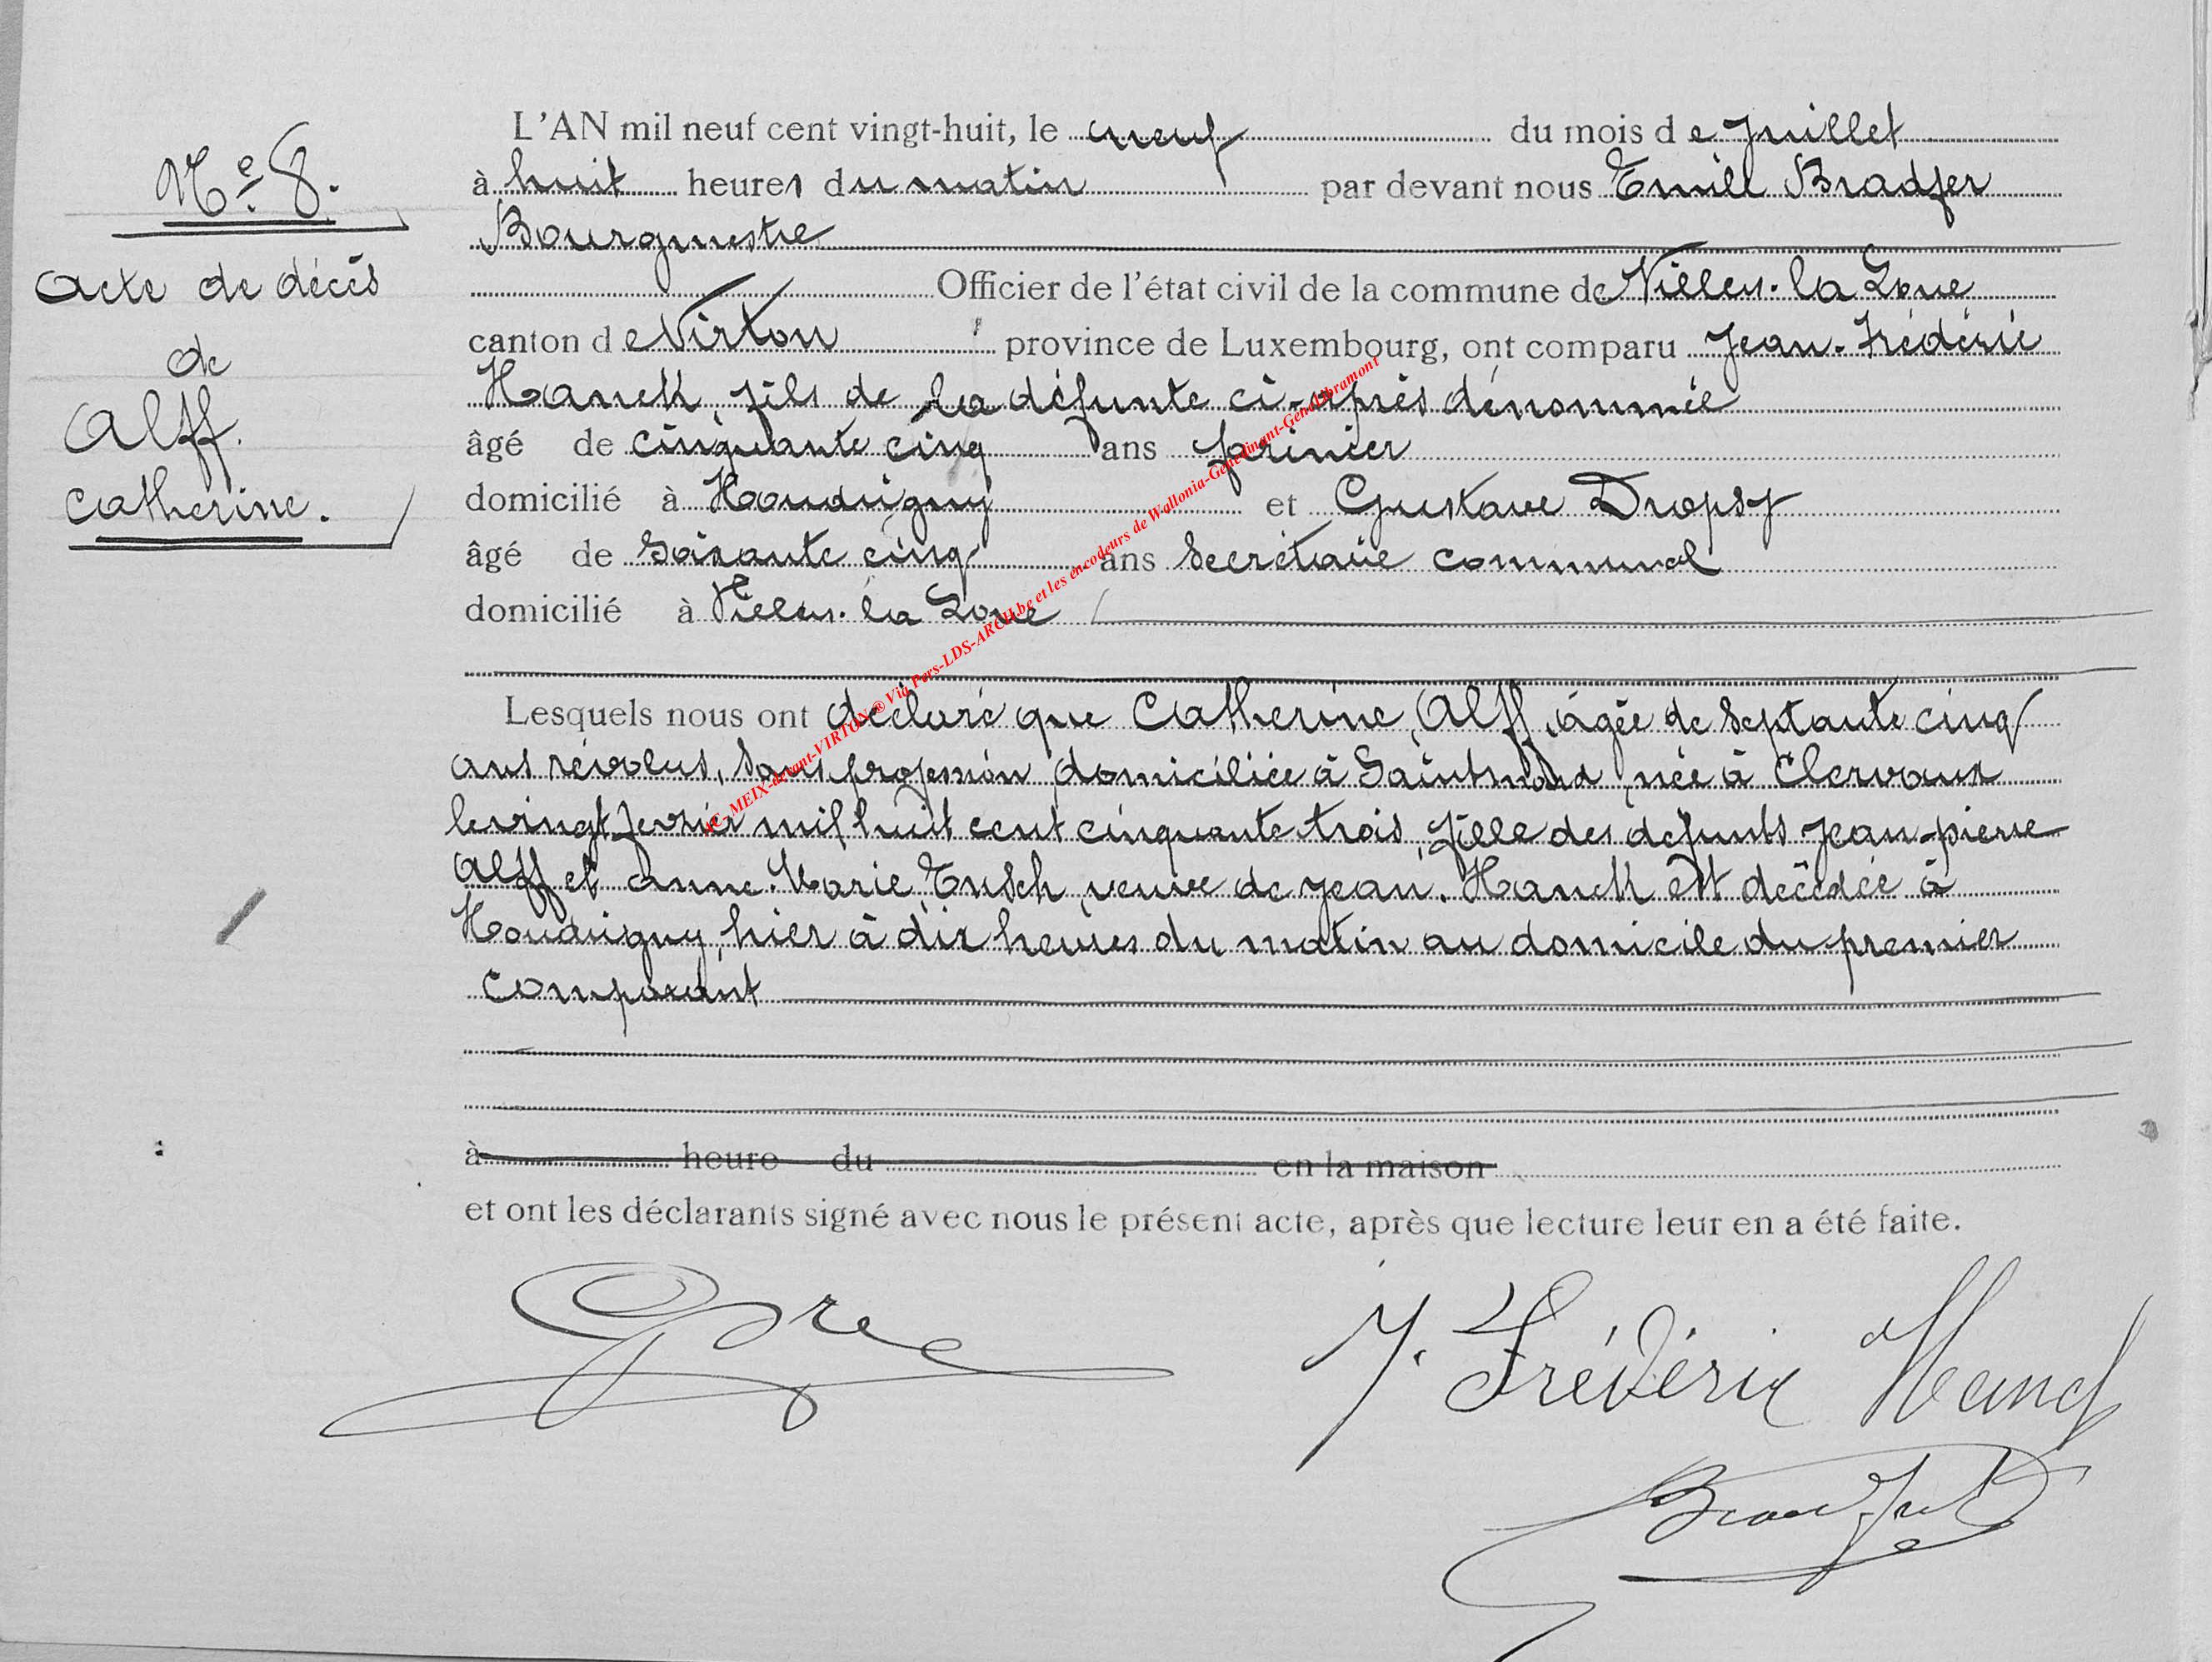 L'AN mil neuf cent vingt-huit, le neuf du mois de Juillet
N° 8.
à huit heures du matin par devant nous Emile Bradfer
Bourgmestre
Acte de décès
Officier de l'état civil de la commune de Villers-la-Loue
de
canton de Virton province de Luxembourg, ont comparu Jean-Frédéric
Alff.
Hanck, fils de la défunte ci-après dénommée
âgé de cinquante cinq ans
Catherine.
domicilié à Houdrigny et Gustave Dropsy
âgé de soixante cinq ans Secrétaire communal
domicilié à Villers-la Loue
Lesquels nous ont déclaré que Catherine Alff, âgée de septante cinq
ans révolus, sans profession domiciliée à Saintmard, née à Clervaux
le vingt fevrier mil huit cent cinquante trois, fille des defunts Jean-pierre
Alff et anne-Marie Tusch, veuve de Jean Hanck est décédée à
Houdrigny, hier à dix heures du matin au domicile du premier
comparant
à heure du en la maison
et ont les déclarants signé avec nous le présent acte, après que lecture leur en a été faite.
J. Frédéric Hanck
Bradfer
AC-MEIX-devant-VIRTON ® Via Pers-LDS-ARCH.be et les encodeurs de Wallonia-Genedinant-GenaLibramont